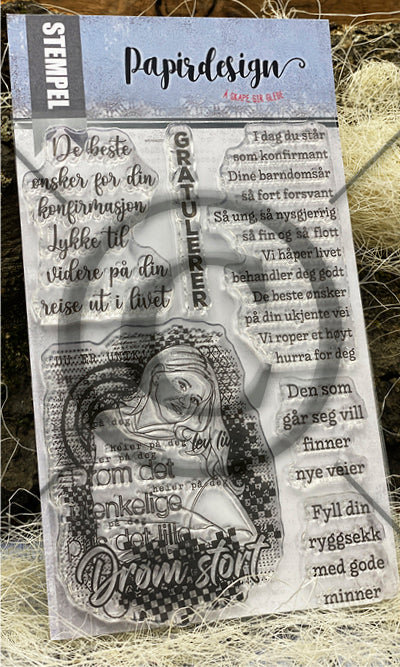 STEMPEL
Papirdesign
Å SKAPE GIR GLEDE
De beste
ønsker for din
konfirmasjon
Lykke til
videre på din
reise ut i livet
GRATULERER
I dag du står
som konfirmant
Dine barndomsår
så fort forsvant
Så ung, så nysgjerrig
så fin og så flott
Vi håper livet
behandler deg godt
De beste ønsker
på din ukjente vei
Vi roper et høyt
hurra for deg
Den som
går seg vill
finner
nye veier
Fyll din
ryggsekk
med gode
minner
DU ER
på deg
heier på deg
på deg
Drøm det
heier på deg
enkelige
på deg
det lille
Drøm stort